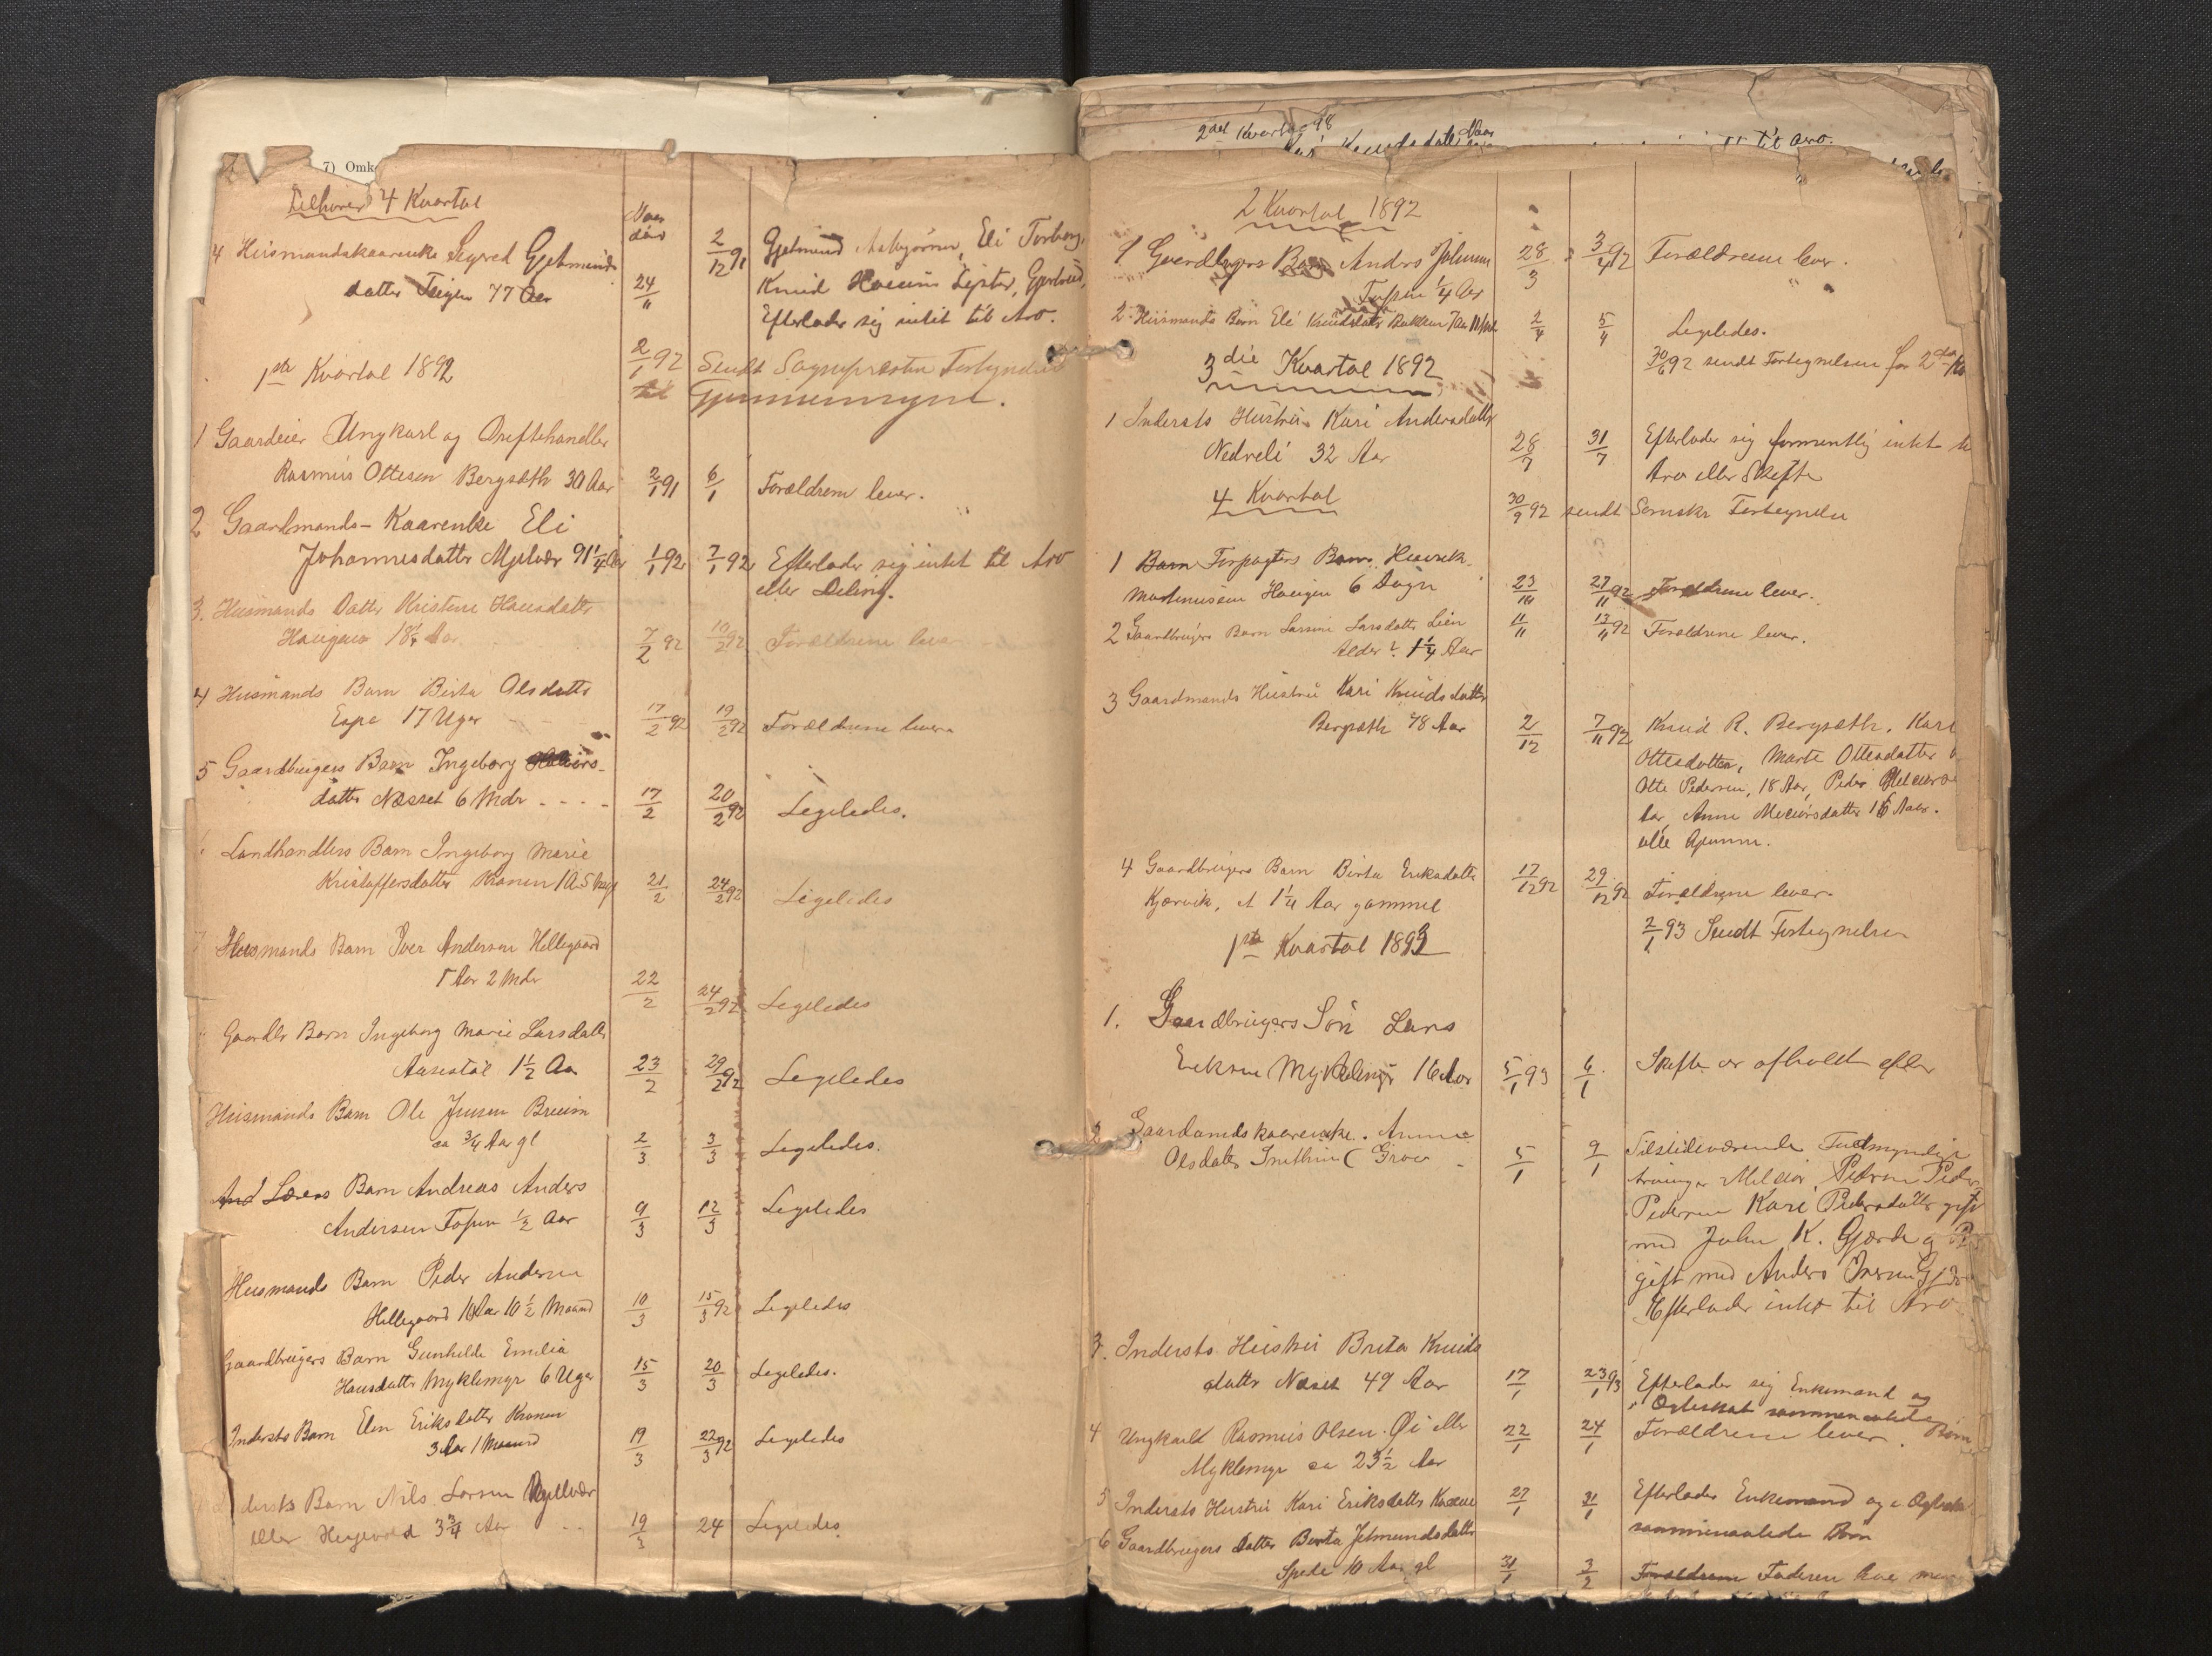 2det Kvartal 98
Knudsdatter Naar
til Arv.
7) Omk
Tilhører 4 Kvartal
Naar
død
4 Husmandskaarenke Sigred Gjetmunds
datter Teigen 77 Aar
24/11
2/12 91
Gjetmund Asbjørnsen, Eli, Torborg,
Knud Lyster, Gjertrud,
Efterlader sig intet til Arv.
1ste Kvartal 1892
2/1 92 Sendt Sognepræsten
til Gjennemsyn.
1 Gaardeier Ungkarl og Driftehandler
Rasmus Ottesen Bergsæth 30 Aar 2/1 91 6/1 Forældrene lever.
2 Gaardmands-Kaarenke Eli
Johannesdatter Mjelvær 91 1/4 Aar 1/1 92 7/1 92 Efterlader sig intet til Arv
eller Deling.
3. Husmands Datter Kristine Hansdatter
Haugen 18 1/4 Aar 7/2 92 10/2 92 Forældrene lever
4 Husmands Barn Birta Olsdatter
Espe 17 Uger 17/2 92 19/2 92 Forældrene lever
5 Gaardbrugers Barn Ingeborg
datter Næsset 6 Mdr - - - - 17/2 20/2 92 Ligeledes.
Landhandlers Barn Ingeborg Marie
Kristoffersdatter Kronen 1 A 5 21/2 24/2 92 Ligeledes
7 Husmands Barn Iver Andersen Hellegaard
5 Aar 2 Mdr 22/2 24/2 92 Ligeledes
Gaardbr Barn Ingeborg Marie Larsdatter
Aasestøl 1 1/2 Aar 23/2 29/2 92 Ligeledes
Husmands Barn Ole Jensen Bruum
ca 3/4 Aar gl 2/3 3/3 Ligeledes.
And Lærers Barn Andreas Anders
Andersen Tofsen 1/2 Aar 9/3 12/3 Ligeledes
Husmands Barn Peder Andersen
Hellegaard 10 Aar 10 1/2 Maaned 10/3 15/3 92 Ligeledes
Gaardbrugers Barn Gunhilde Emilia
Hansdatter Myklemyr 6 Uger 15/3 20/3 Ligeledes.
Indersts Barn Elen Eriksdatter Kronen
3 Aar 1 Maaned 19/3 22/3 92 Ligeledes
dersts Barn Nils Larsen Mjelvær
eller 3 3/4 Aar 19/3 24 Ligeledes
2 Kvartal 1892
1 Gaardbrugers Barn Anders Johnsen
Tofsen 1/4 Aar 28/3 3/4 92 Forældrene lever.
2. Husmands Barn Eli Knudsdatter Bakken 7 Aar 11 Mdr 2/4 5/4 Ligeledes.
30/6 92 sendt Fortegnelsen for 2det
3die Kvartal 1892
1 Indersts Hustru Kari Andersdatter
Nedreli 32 Aar 28/7 31/7 Efterlader sig formentlig intet til
Arv eller Skifte
4 Kvartal
30/9 92 sendt Fortegnelse
1 Barn Forpagters Barn Henrik
Martinusen Haugen 6 Dage 23/10 27/11 92 Forældrene lever.
2 Gaardbrugers Barn Larsine Larsdatter Lien
Alder ? 1 1/4 Aar 11/11 13/11 92 Forældrene lever.
3 Gaardmands Hustru Kari Knudsdatter
Bergsæth 78 Aar 2/12 7/11 92 Knud R. Bergsæth, Kari
Ottesdatter, Marte Ottesdatter
Otte Pedersen, 18 Aar, Peder
Aar, Anne Meliorsdatter 16 Aar.
alle Gjenns.
4 Gaardbrugers Barn Birta Eriksdatter
Kjærvik, et 1 1/4 Aar gammel 17/12 92 29/12 92 Forældrene lever.
2/1 93 Sendt Fortegnelsen
1ste Kvartal 1893
1. Gaardbrugers Søn Lars
Eriksen Myklemyr 16 Aar 5/1 93 6/1 Skifte er afholdt efter
2 Gaardmandskaarenke. Anna
Olsdatter Snethun ( Grov - 5/1 9/1 Tilstedeværende Fuldmyndige
Arvinger Melior Pedersen Peder
Pedersen Kari Pedersdatter gift
med John K. Gjærde og
gift med Anders Iversen
Efterlader intet til Arv
3. Indersts Hustru Brita Knuds
datter Næset 49 Aar 17/1 23/1 93 Efterlader sig Enkemand og
Ægteskab sammenavlede Børn
4 Ungkarl Rasmus Olsen Øi eller
Myklemyr ca 23 1/2 Aar 22/1 24/1 Forældrene lever.
5 Indersts Hustru Kari Eriksdatter 27/1 31/1 Efterlader Enkemand og i Ægtesk
sammenavlede Børn
6 Gaardbrugers Datter Birta Jetmundsdatter
Spede 10 Aar gl 31/1 3/2 Forældrene Faderen lever men